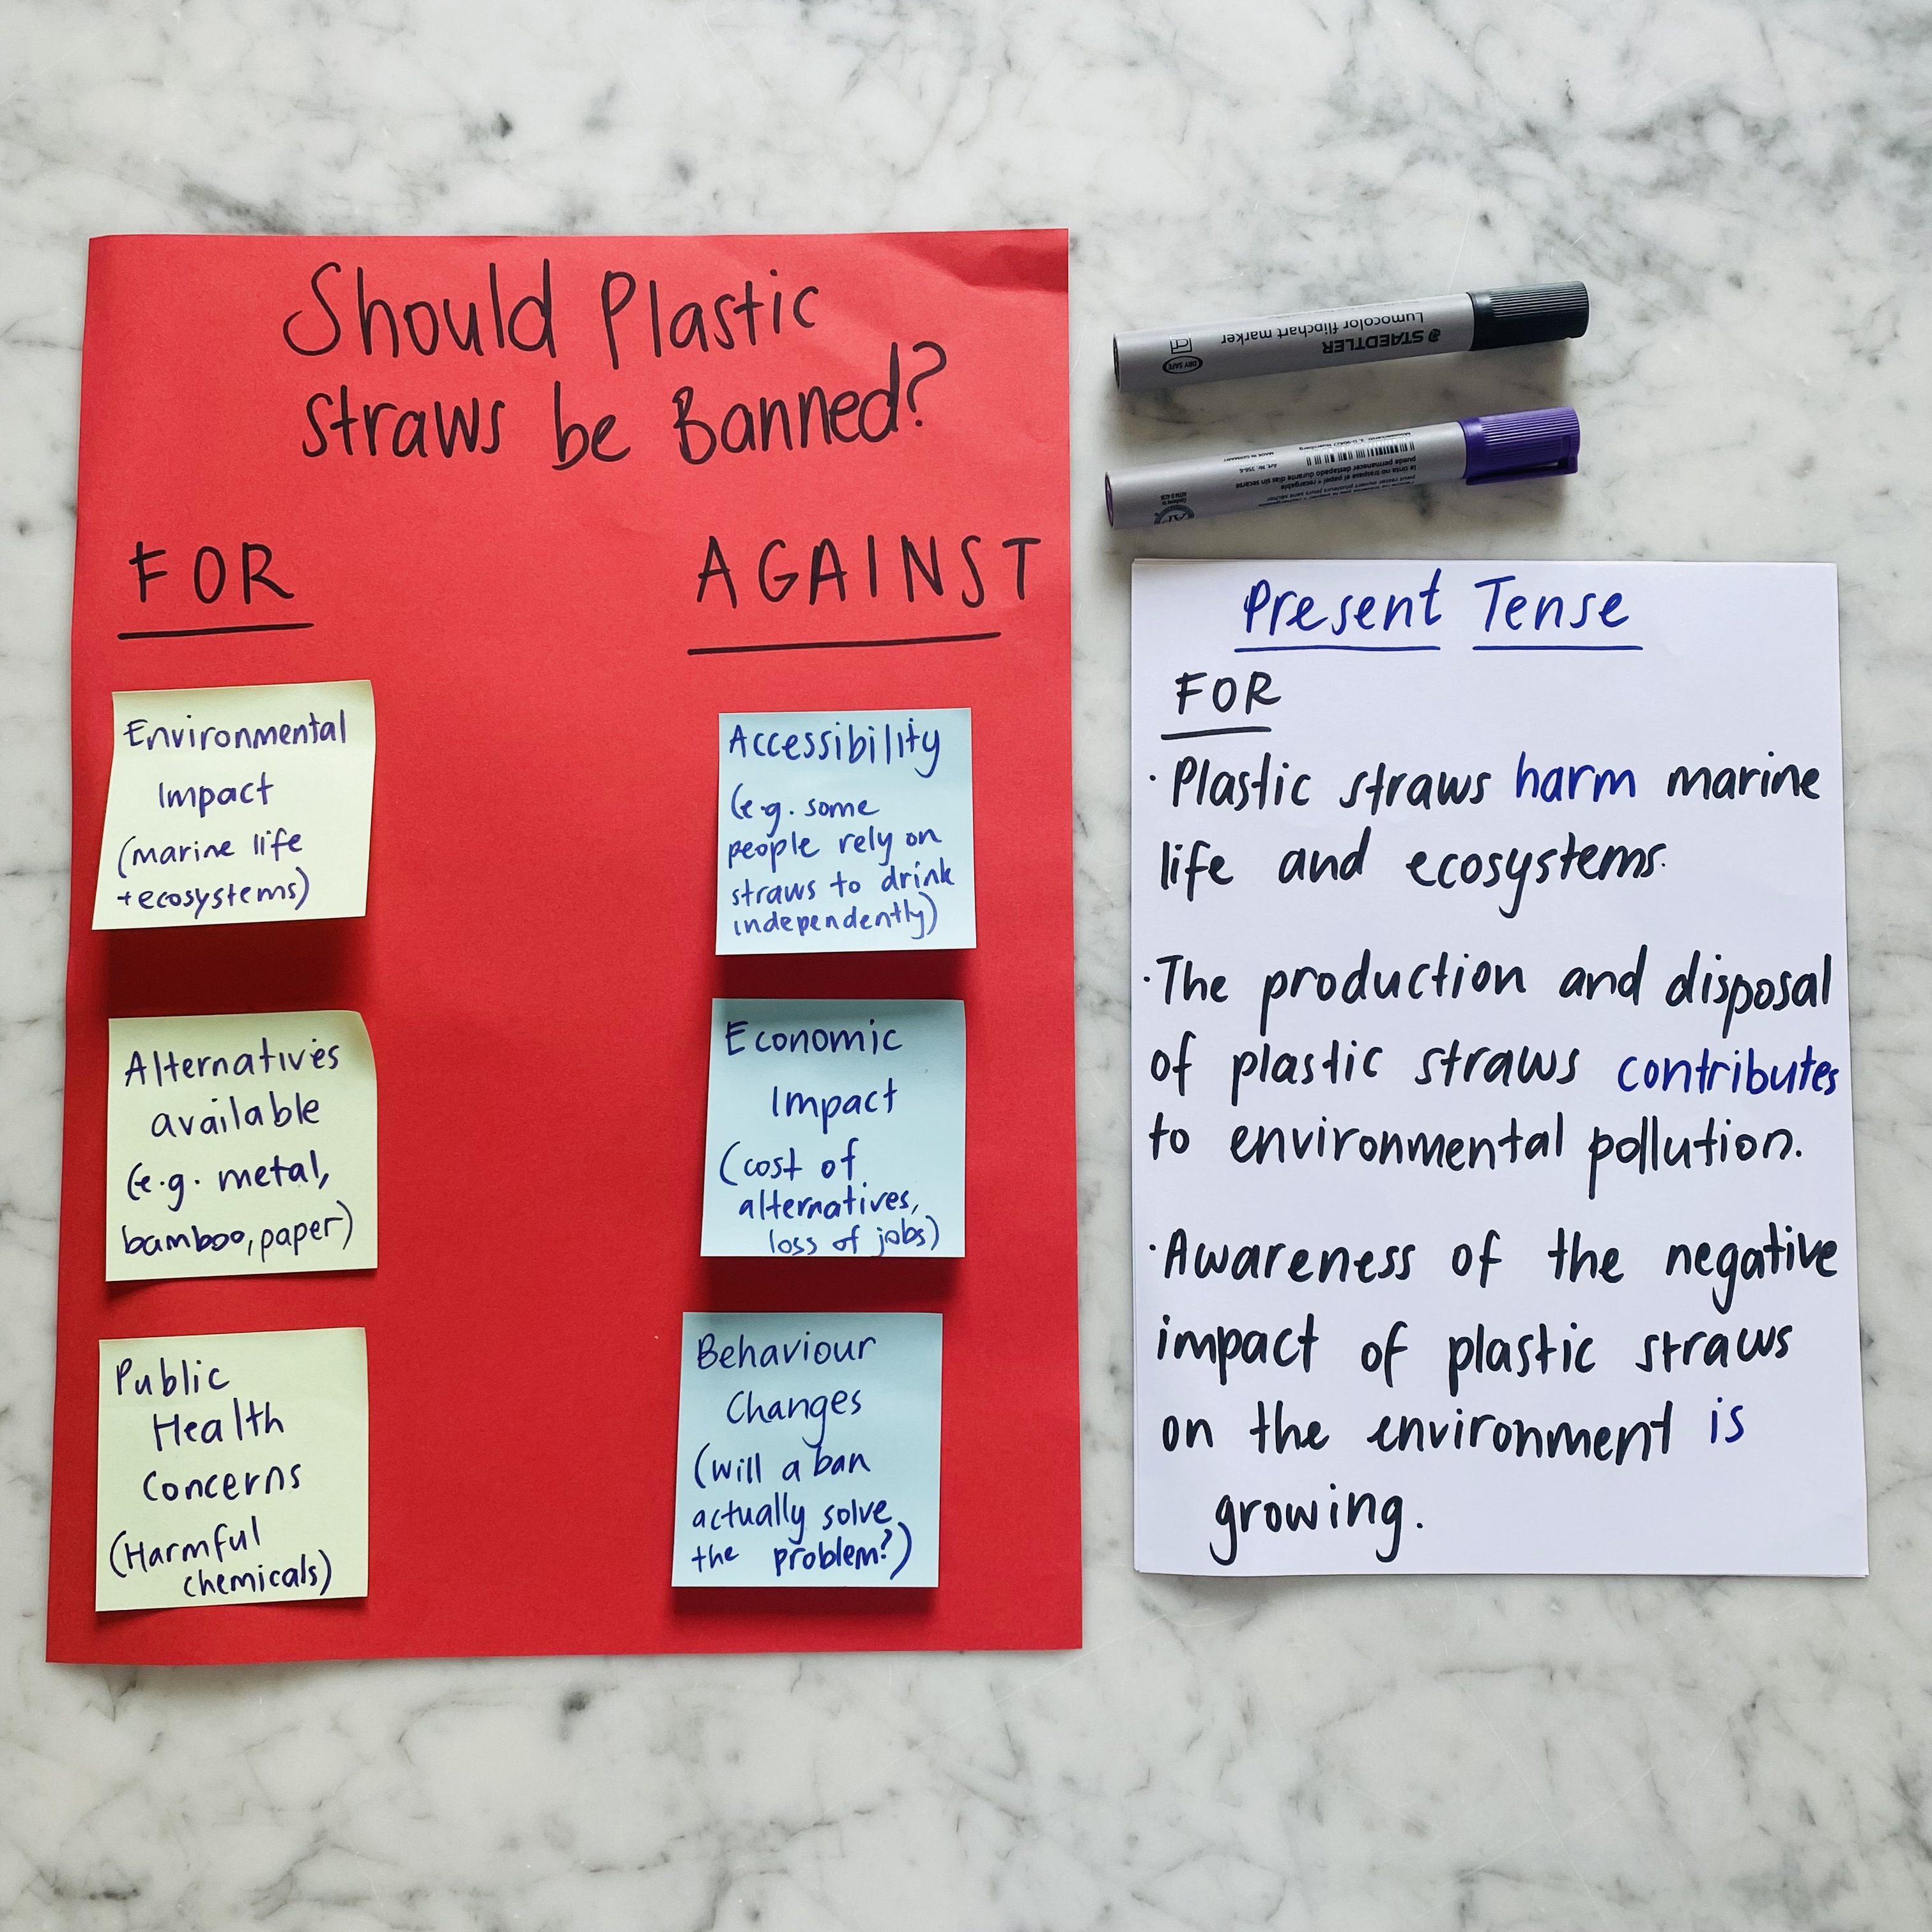 Should Plastic
straws be Banned?
FOR
Environmental
Impact
(marine life
+ecosystems)
Alternatives
available
(e.g. metal,
bamboo, paper)
Public
Health
Concerns
(Harmful
chemicals)
AGAINST
Accessibility
(e.g. some
people rely on
straws to drink
independently)
Economic
Impact
(cost of
alternatives,
loss of jobs)
Behaviour
Changes
(will a ban
actually solve
the problem?)
STAEDTLER
Lumocolor flipchart marker
DRY SAFE
MADE IN GERMANY
puede permanecer destapado durante días sin secarse
la tinta no traspasa el papel • recargable
Present Tense
FOR
·Plastic straws harm marine
life and ecosystems.
·The production and disposal
of plastic straws contributes
to environmental pollution.
·Awareness of the negative
impact of plastic straws
on the environment is
growing.